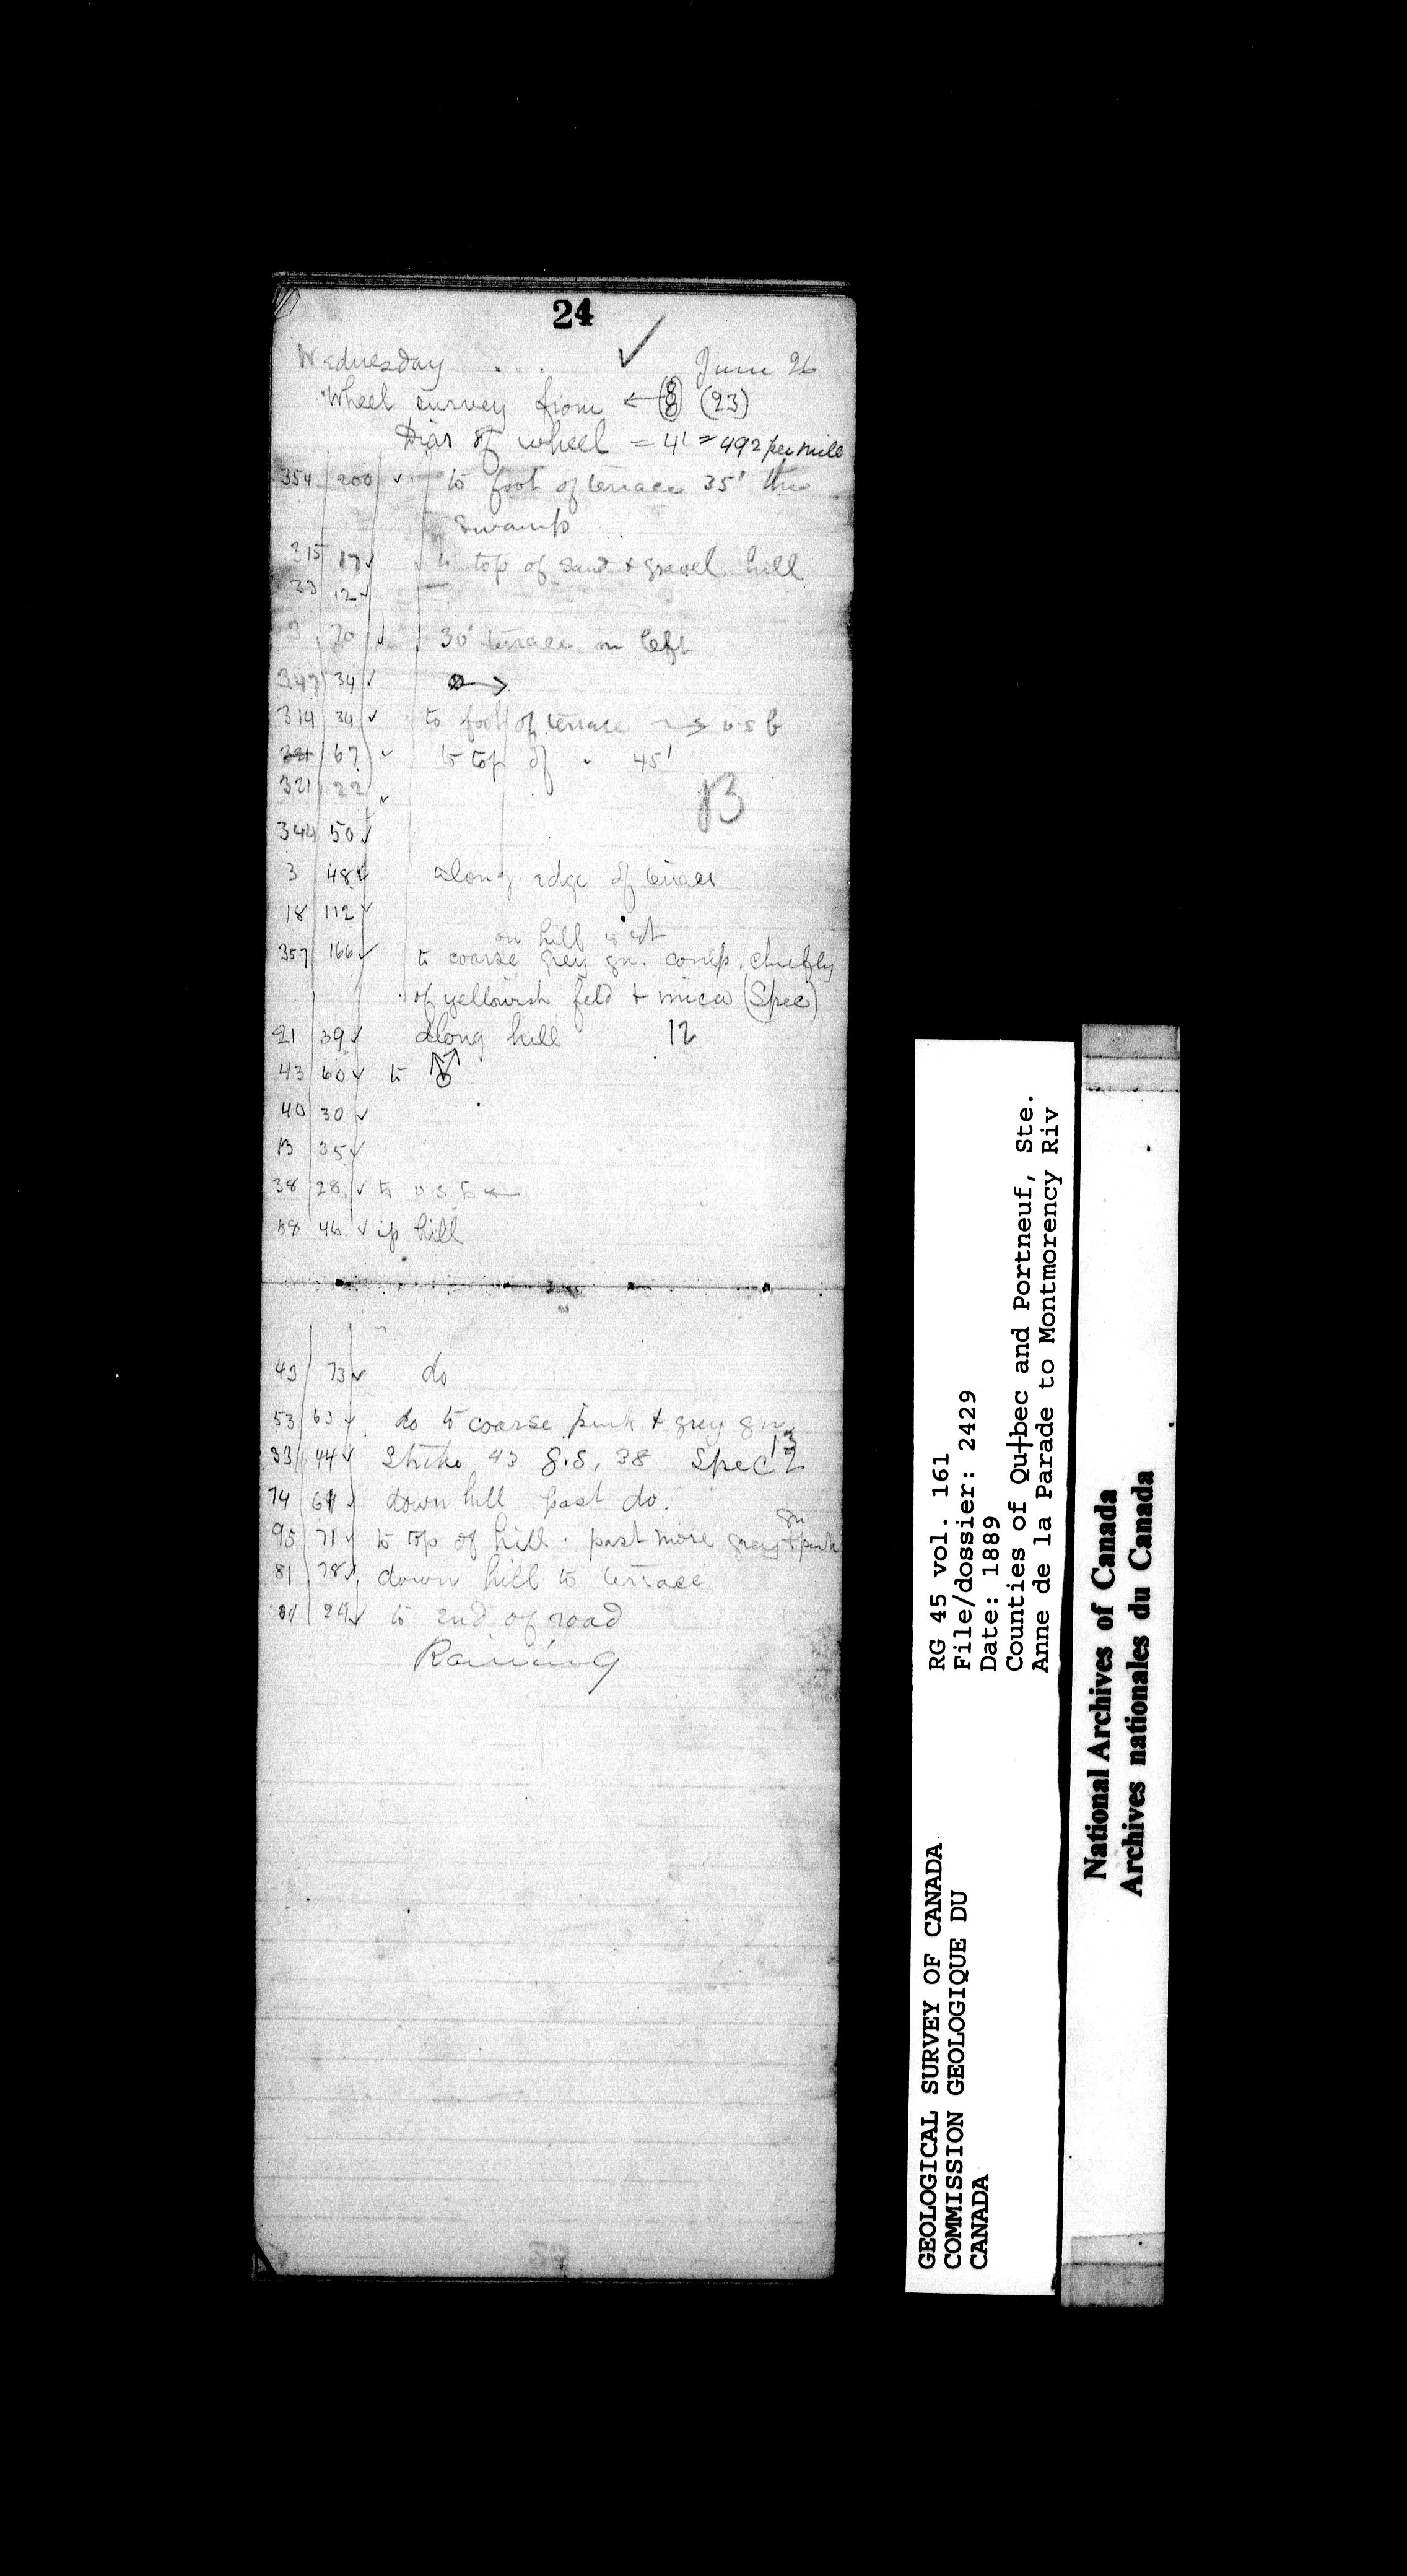 24
Wednesday . . . ✓ June 26
Wheel survey from ← 8 (23)
Diar of wheel = 4' = 492 per mile
354 200 ✓ to foot of terrace 35' thro
swamp
315 17 ✓ to top of sand & gravel hill
33 12 ✓
3 70 ✓ 30' terrace on left
347 34 ✓ →
314 34 ✓ to foot of terrace → v s b
67 ✓ to top of " 45'
321 22 ✓
13
344 50 ✓
3 48 ✓ along edge of terrace
18 112 ✓
on hill
357 166 ✓ to coarse grey gn. comp. chiefly
of yellowish feld & mica (Spec)
21 39 ✓ along hill 12
43 60 ✓ to
40 30 ✓
13 35 ✓
38 28 ✓ to v s b ←
58 46 ✓ up hill
43 73 ✓ do
53 63 ✓ do to coarse pink & grey gn
33 44 ✓ Strike 43 g.s, 38 Spec 13
74 64 ✓ down hill past do.
gn
95 71 ✓ to top of hill. past more grey & pink
81 78 ✓ down hill to terrace
24 ✓ to end of road
Raining
RG 45 vol. 161
File/dossier: 2429
Date: 1889
Counties of Qu†bec and Portneuf, Ste.
Anne de la Parade to Montmorency Riv
GEOLOGICAL SURVEY OF CANADA
COMMISSION GEOLOGIQUE DU
CANADA
National Archives of Canada
Archives nationales du Canada